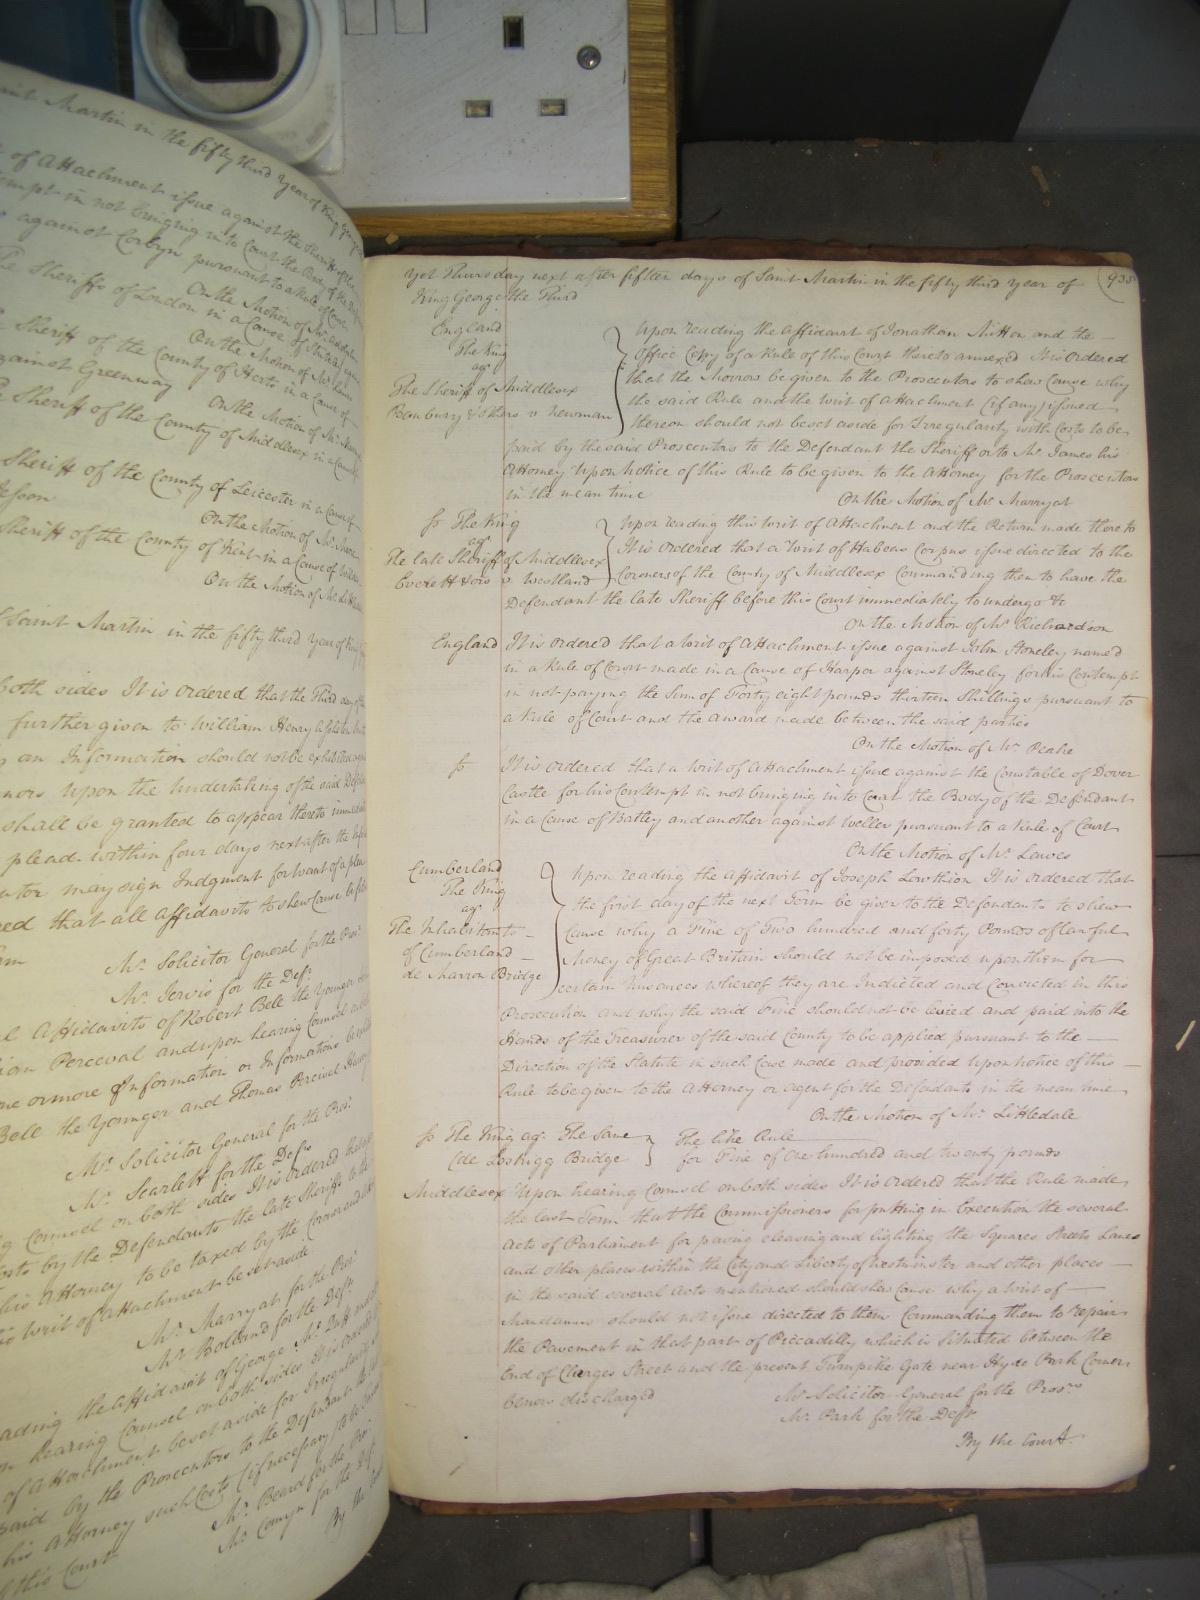 Saint Martin in the fifty third Year of King George
of Attachment issue against the Sheriff of the
in not bringing into Court the Body of the
against Corbyn pursuant to a Rule of Court
On the Motion of Mr.
The Sheriffs of London in a Cause of
On the Motion of Mr.
Sheriff of the County of Herts in a Cause of
against Greenway On the Motion of Mr.
Sheriff of the County of Middlesex in a Cause
Sheriff of the County of Leicester in a Cause of
On the Motion of Mr.
Sheriff of the County of Kent in a Cause of
On the Motion of Mr.
Saint Martin in the fifty third Year of King
both sides It is ordered that the Third day of
further given to William Henry
an Information should not be exhibited
upon the Undertaking of the said
shall be granted to appear thereto
plead within four days next after the
may sign Judgment for want of a plea
that all Affidavits to shew Cause be
Mr. Solicitor General for the Pros.
Mr. Jervis for the Def.
Affidavits of Robert Bell the Younger
Perceval and upon hearing Counsel
one or more Information or Informations
Bell the Younger and Thomas Percival
Mr. Solicitor General for the Pros.
Mr. Scarlett for the Defts
Counsel on both sides It is ordered
Costs by the Defendants the late Sheriffs
his Attorney to be taxed by the Coroner and
Writ of Attachment be set aside
Mr. Marryat for the Pros.
Mr. Bolland for the Deft.
the Affidavit of George
hearing Counsel on both sides It is ordered
of Attachment be set aside for Irregularity
paid by the Prosecutors to the Defendant
his Attorney such Costs (if necessary) to be
Mr. for the Pros.
this Court Mr. Comyn for the Def.
By the
yet Thursday next after fifteen days of Saint Martin in the fifty third year of (935
King George the Third
England
The King
agt.
The Sheriff of Middlesex
Banbury & others v Newman
Upon reading the Affidavit of Jonathan and the
Office Copy of a Rule of this Court thereto annexed It is Ordered
that the Morrow be given to the Prosecutors to shew Cause why
the said Rule and the Writ of Attachment (if any) issued
thereon should not be set aside for Irregularity with Costs to be
paid by the said Prosecutors to the Defendant the Sheriff or to Mr. James his
Attorney Upon Notice of this Rule to be given to the Attorney for the Prosecutors
in the mean time On the Motion of Mr. Marryat
fo The King
agt.
The late Sheriff of Middlesex
Everett & ors v. Westland
Upon reading this Writ of Attachment and the Return made thereto
It is ordered that a Writ of Habeas Corpus issue directed to the
Coroners of the County of Middlesex Commanding them to have the
Defendant the late Sheriff before this Court immediately to undergo &c
On the Motion of Mr. Richardson
England It is ordered that a Writ of Attachment issue against John Stoneley named
in a Rule of Court made in a Cause of Harper against Stoneley for his Contempt
in not paying the Sum of Forty eight pounds thirteen Shillings pursuant to
a Rule of Court and the award made between the said parties
On the Motion of Mr. Peake
fo It is ordered that a Writ of Attachment issue against the Constable of Dover
Castle for his Contempt in not bringing into Court the Body of the Defendant
in a Cause of Batley and another against Weller pursuant to a Rule of Court
On the Motion of Mr. Lawes
Cumberland
The King
agt.
The Inhabitants
of Cumberland
de Marron Bridge
Upon reading the Affidavit of Joseph Lowthion It is ordered that
the first day of the next Term be given to the Defendants to shew
Cause why a Fine of Two hundred and forty Pounds of lawful
Money of Great Britain should not be imposed upon them for
certain Nusances whereof they are Indicted and Convicted in this
Prosecution and why the said Fine should not be levied and paid into the
Hands of the Treasurer of the said County to be applied pursuant to the
Direction of the Statute in such Case made and provided Upon notice of this
Rule to be given to the Attorney or Agent for the Defendants in the mean time
On the Motion of Mr. Littledale
fo The King agt. The Same
(de Loskigg Bridge
The like Rule
for Fine of One hundred and twenty pounds
Middlesex Upon hearing Counsel on both sides It is ordered that the Rule made
the last Term that the Commissioners for putting in Execution the several
Acts of Parliament for paving cleansing and lighting the Squares Streets Lanes
and other places within the City and Liberty of Westminster and other places
in the said several Acts mentioned should shew Cause why a Writ of
Mandamus should not issue directed to them Commanding them to repair
the Pavement in that part of Piccadilly which is Situated between the
End of Clarges Street and the present Turnpike Gate near Hyde Park Corner
be now discharged Mr. Solicitor General for the Prosrs
Mr. Park for the Defts
By the Court